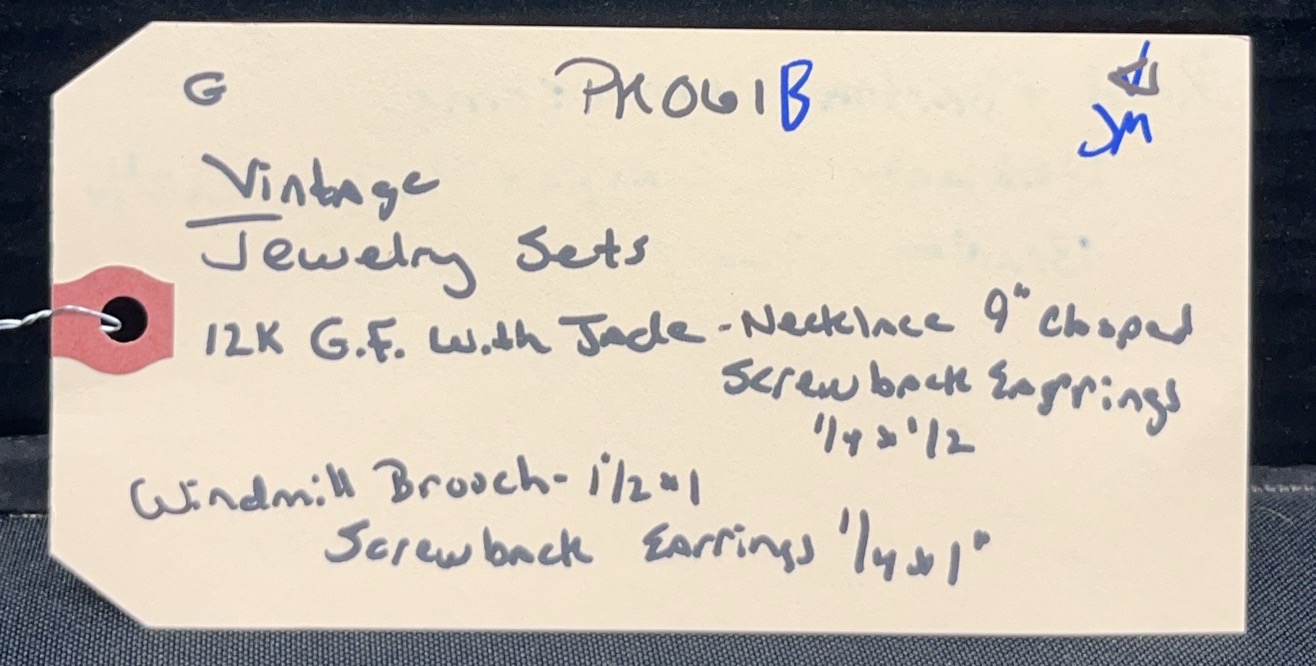 G PK061B
JM
Vintage
Jewelry Sets
12K G.F. with Jade - Necklace 9" Clasped
Screwback Earrings
1/4 x 1/2
Windmill Brooch - 1 1/2 x 1
Screwback Earrings 1/4 x 1"